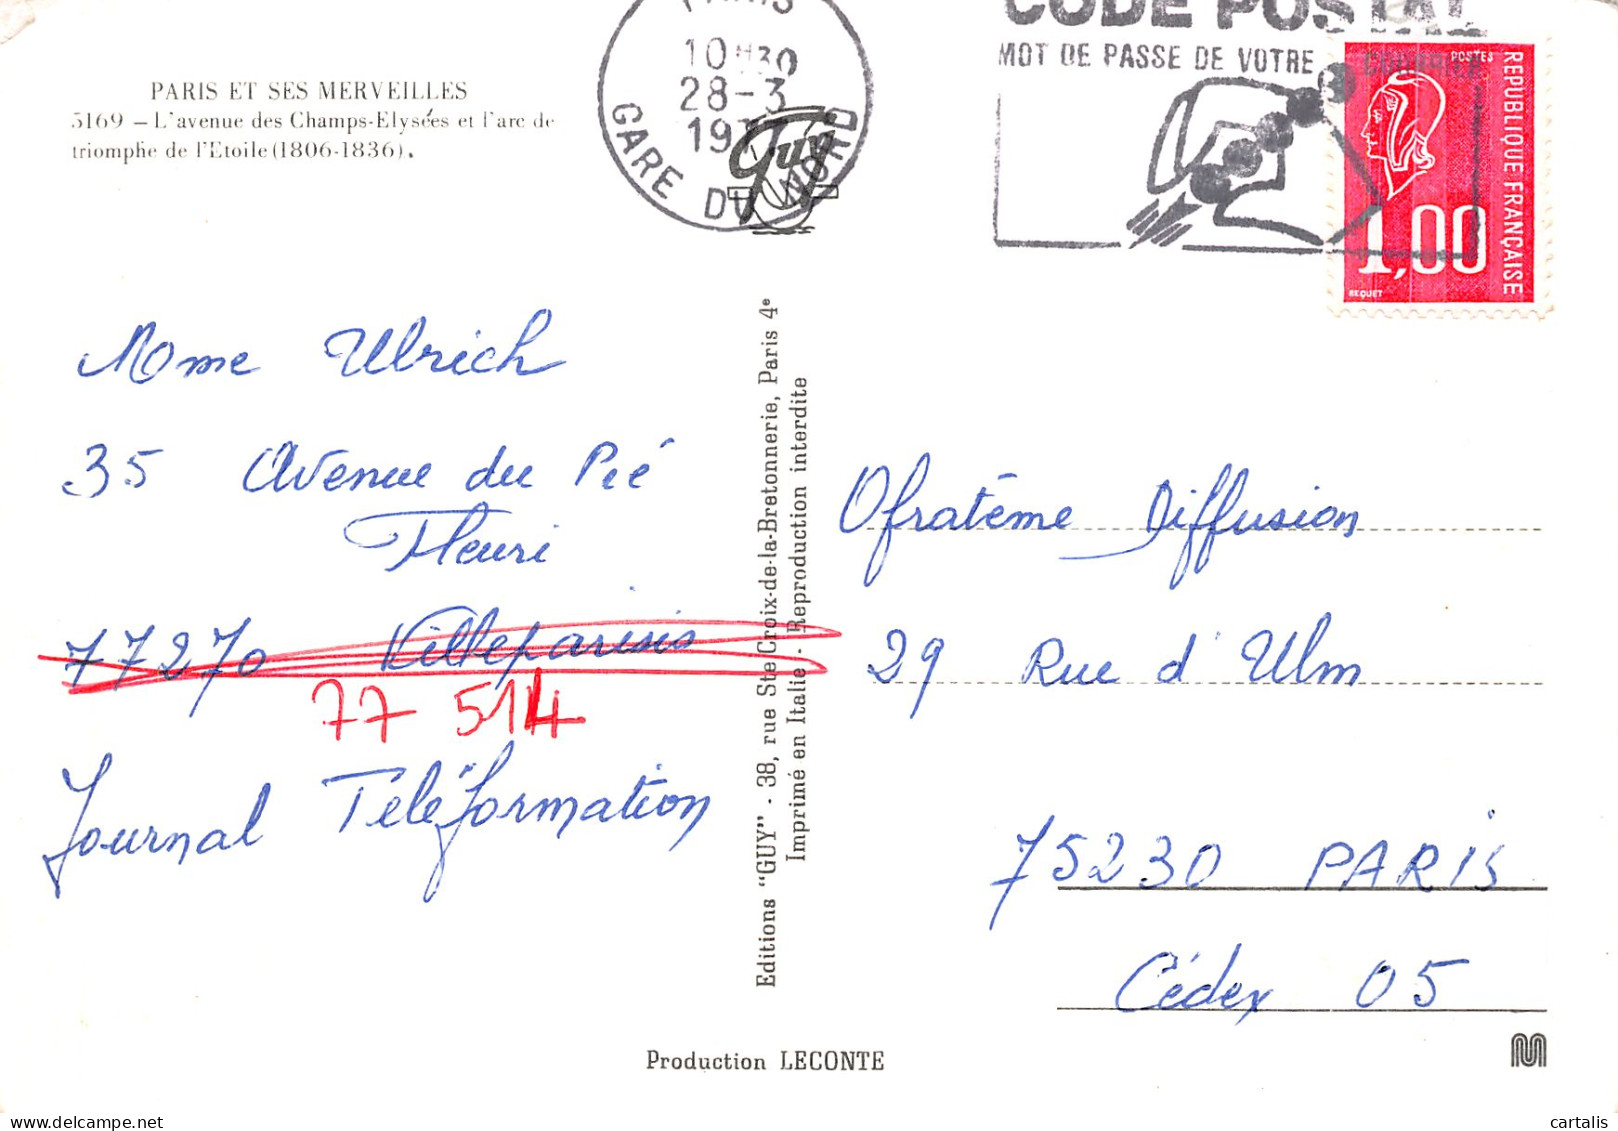 PARIS ET SES MERVEILLES
5169 — L'avenue des Champs-Elysées et l'arc de
triomphe de l'Etoile (1806-1836).
PARIS
10H30
28-3
GARE DU NORD
Guy
CODE POSTAL
MOT DE PASSE DE VOTRE COURRIER
POSTES
REPUBLIQUE FRANÇAISE
1,00
BEQUET
Mome Ulrich
35 Avenue du Pré
Fleuri
77270 Villeparisis
77 514
Journal Téléformation
Editions "GUY" - 38, rue Ste Croix-de-la-Bretonnerie, Paris 4e
Imprimé en Italie - Reproduction interdite
Ofratème Diffusion
29 Rue d'Ulm
75230 PARIS
Cédex 05
Production LECONTE
M
cartalis
www.delcampe.net